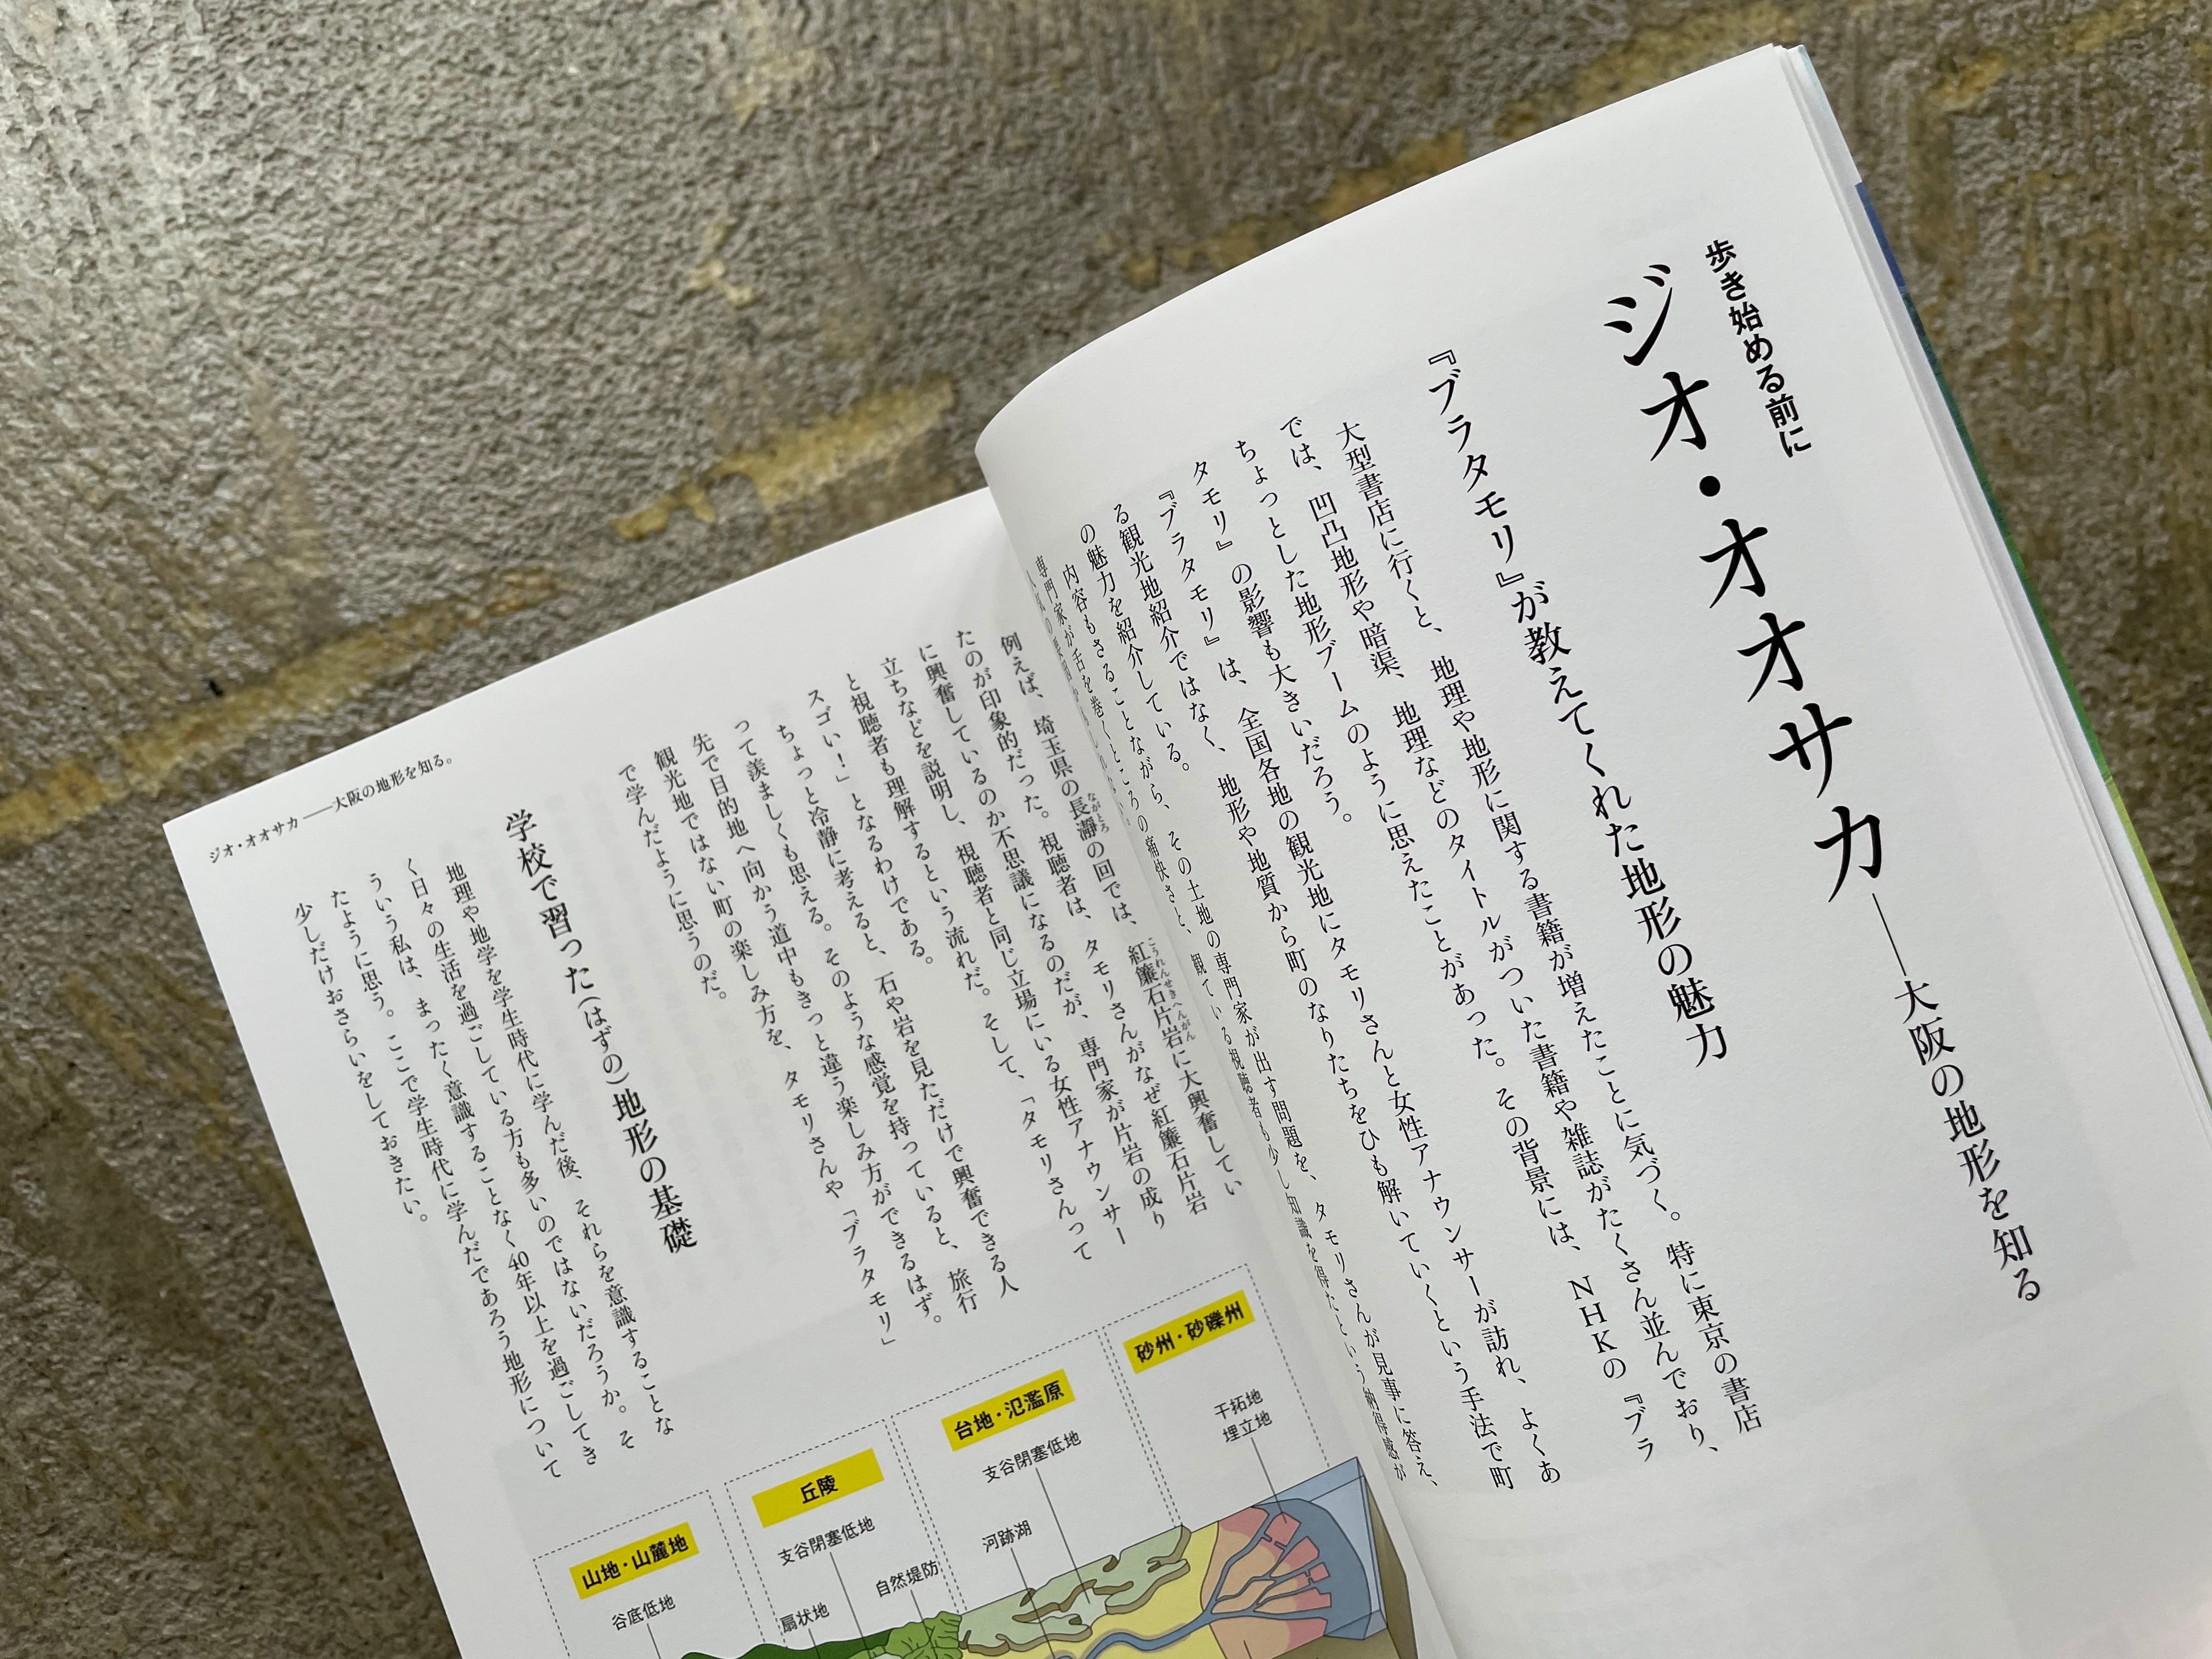 歩き始める前に
ジオ・オオサカ──大阪の地形を知る
『ブラタモリ』が教えてくれた地形の魅力
大型書店に行くと、地理や地形に関する書籍が増えたことに気づく。特に東京の書店
では、凹凸地形や暗渠、地理などのタイトルがついた書籍や雑誌がたくさん並んでおり、
ちょっとした地形ブームのように思えたことがあった。その背景には、NHKの『ブラ
タモリ』の影響も大きいだろう。
『ブラタモリ』は、全国各地の観光地にタモリさんと女性アナウンサーが訪れ、よくあ
る観光地紹介ではなく、地形や地質から町のなりたちをひも解いていくという手法で町
の魅力を紹介している。
内容もさることながら、その土地の専門家が出す問題を、タモリさんが見事に答え、
専門家が舌を巻くところの痛快さと、観ている視聴者も少し知識を得たという納得感が
例えば、埼玉県の長瀞の回では、紅簾石片岩に大興奮してい
ながとろ
こうれんせきへんがん
たのが印象的だった。視聴者は、タモリさんがなぜ紅簾石片岩
に興奮しているのか不思議になるのだが、専門家が片岩の成り
立ちなどを説明し、視聴者と同じ立場にいる女性アナウンサー
と視聴者も理解するという流れだ。そして、「タモリさんって
スゴい！」となるわけである。
ちょっと冷静に考えると、石や岩を見ただけで興奮できる人
って羨ましくも思える。そのような感覚を持っていると、旅行
先で目的地へ向かう道中もきっと違う楽しみ方ができるはず。
観光地ではない町の楽しみ方を、タモリさんや「ブラタモリ」
で学んだように思うのだ。
学校で習った（はずの）地形の基礎
地理や地学を学生時代に学んだ後、それらを意識することな
く日々の生活を過ごしている方も多いのではないだろうか。そ
ういう私は、まったく意識することなく40年以上を過ごしてき
たように思う。ここで学生時代に学んだであろう地形について
少しだけおさらいをしておきたい。
ジオ・オオサカ──大阪の地形を知る。
砂州・砂礫州
干拓地
埋立地
台地・氾濫原
支谷閉塞低地
河跡湖
丘陵
支谷閉塞低地
自然堤防
扇状地
山地・山麓地
谷底低地